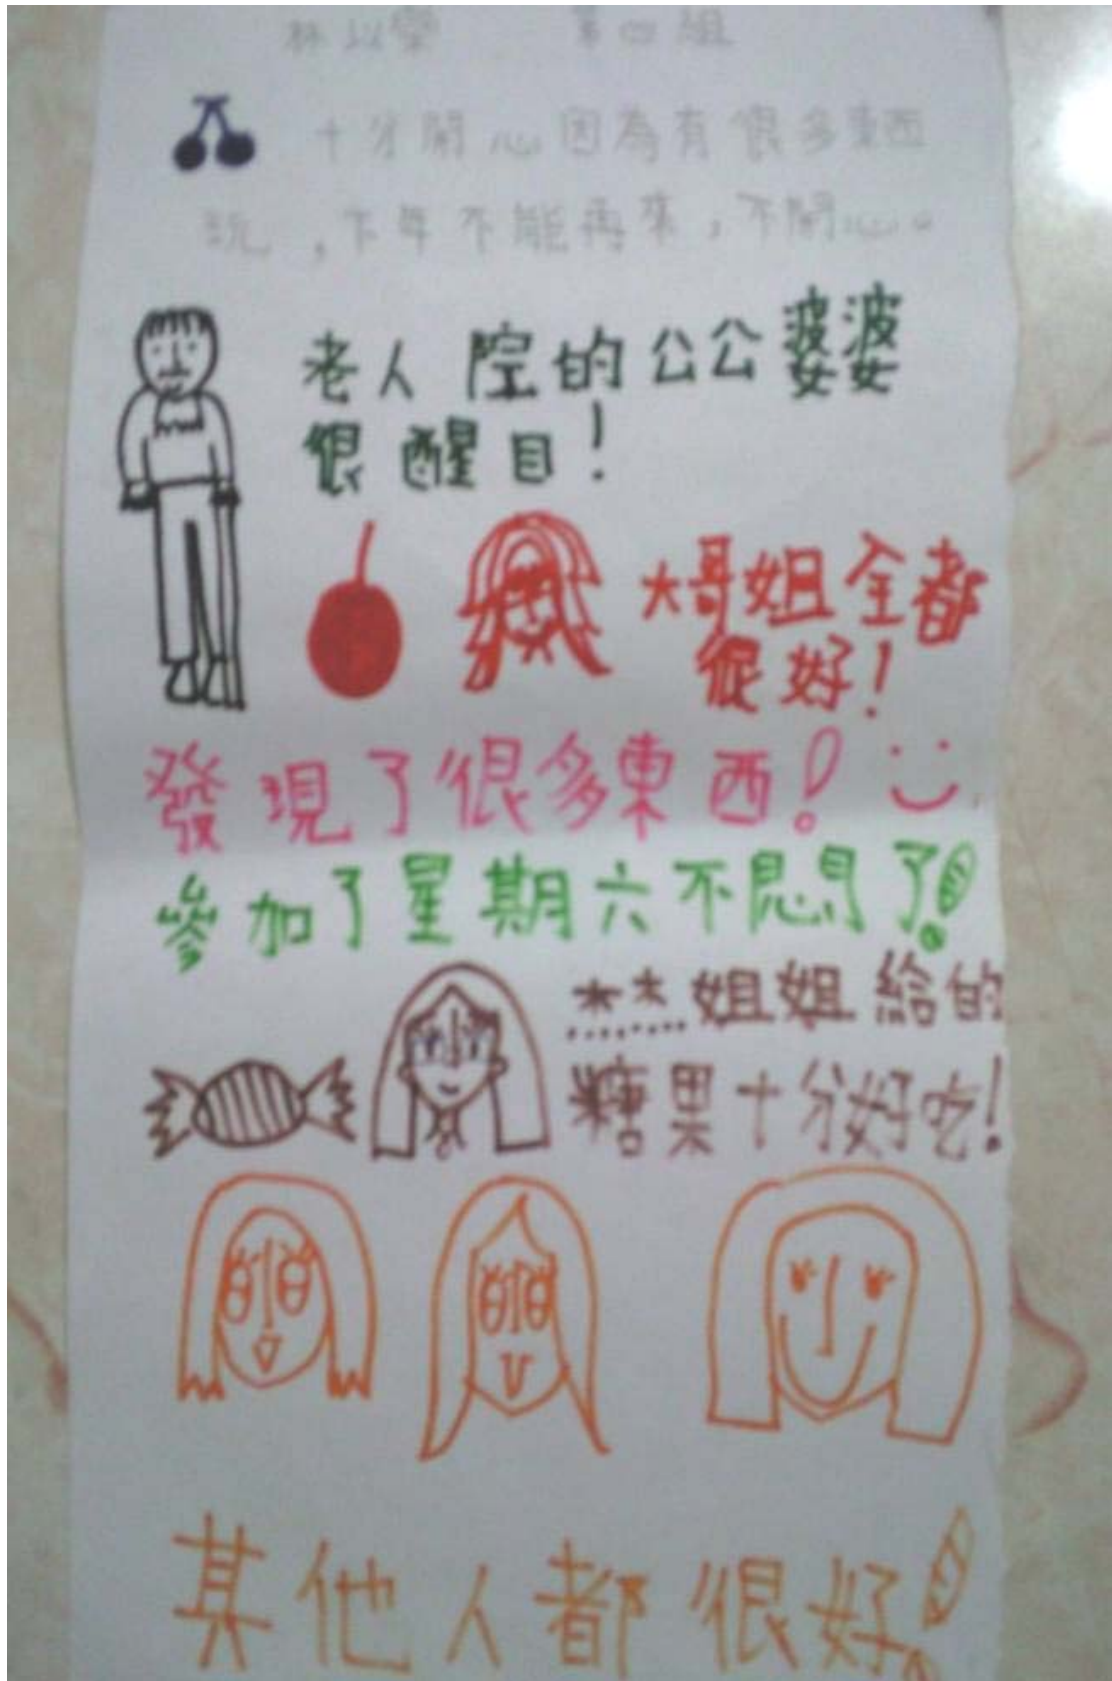 林以樂 第四組
十分開心因為有很多東西
玩，下年不能再來，不開心。
老人院的公公婆婆
很醒目！
大哥姐全都
很好！
發現了很多東西！
參加了星期六不悶了！
**姐姐給的
糖果十分好吃！
其他人都很好！